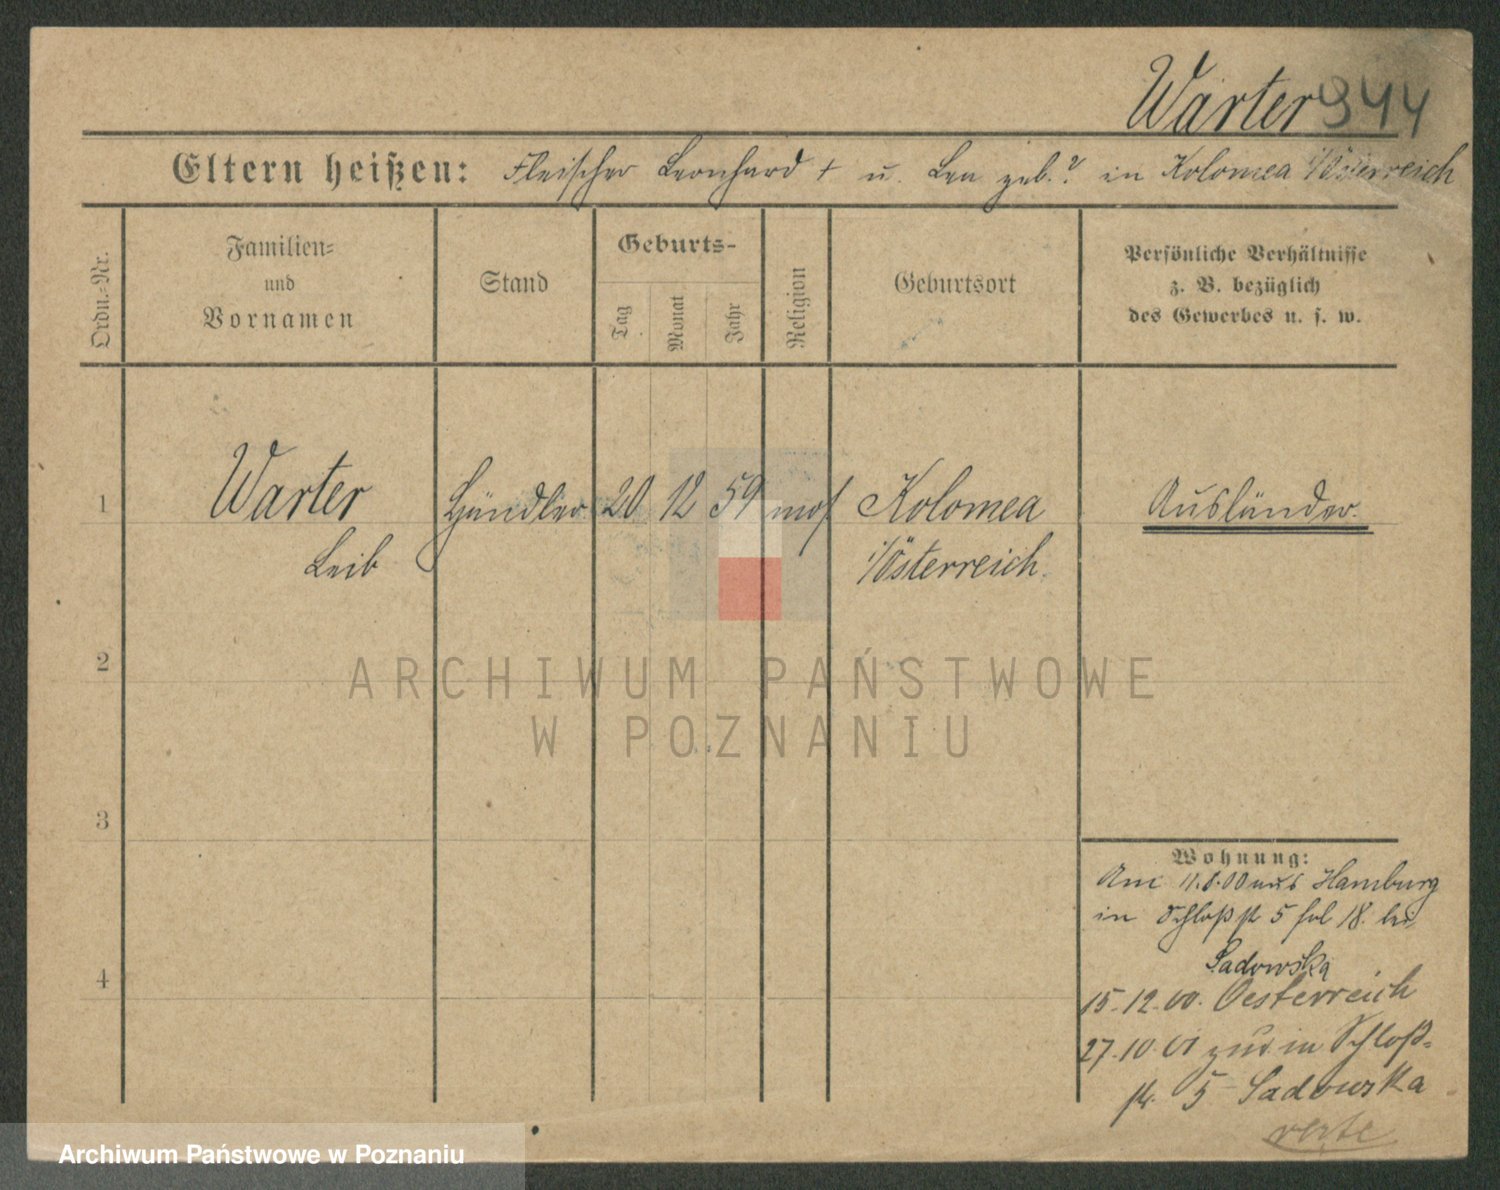 Warter 944
Eltern heißen: Fleischer Leonhard † u. Lea geb. ? in Kolomea i/Österreich
Ordn.-Nr.
Familien-
und
Vornamen
Stand
Geburts-
Tag
Monat
Jahr
Religion
Geburtsort
Persönliche Verhältnisse
z. B. bezüglich
des Gewerbes u. s. w.
1 Warter Händler 20 12 59 mos Kolomea Ausländer.
Leib i/Österreich.
2
3
4
Wohnung:
Am 11.8.00 aus Hamburg
in Schloßstr 5 fol 18. bei
Sadowska
15.12.00. Oesterreich
27.10.01 zur. in Schloß-
str. 5 Sadowska
verte
ARCHIWUM PAŃSTWOWE
W POZNANIU
Archiwum Państwowe w Poznaniu